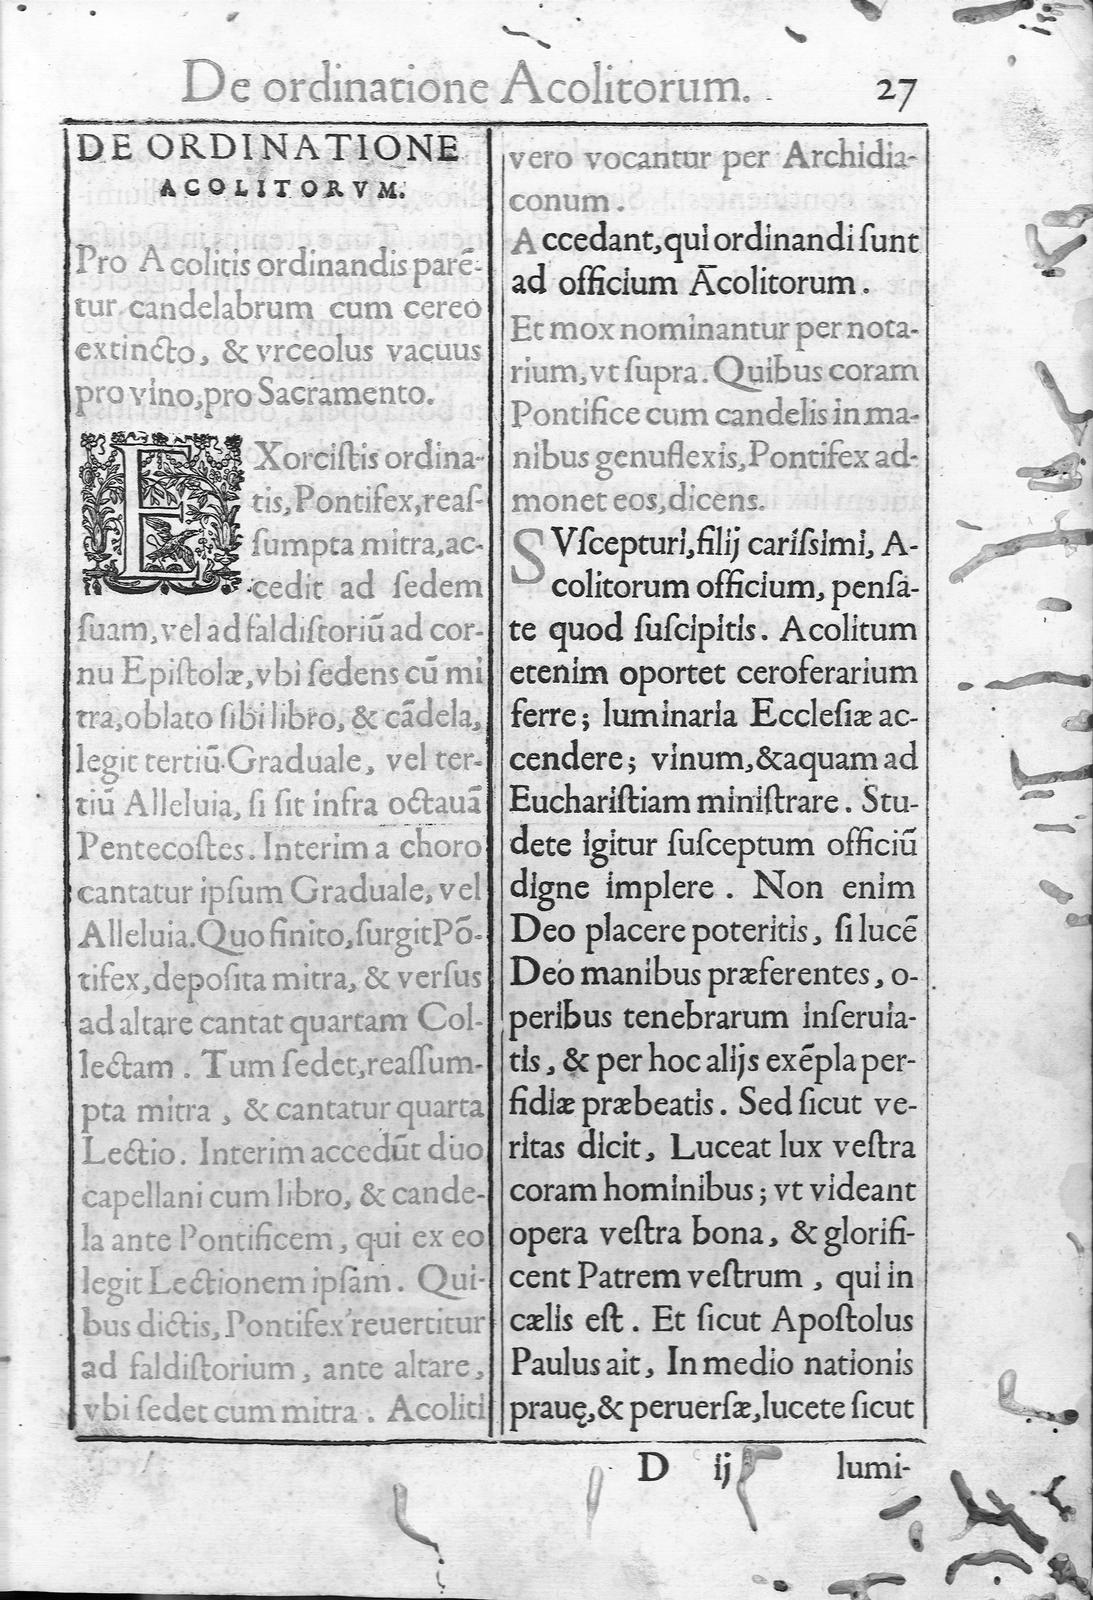 De ordinatione Acolitorum. 27
DE ORDINATIONE
ACOLITORVM.
Pro Acolitis ordinandis parẽ-
tur candelabrum cum cereo
extincto, & vrceolus vacuus
pro vino, pro Sacramento.
EXorciſtis ordina-
tis, Pontifex, reaſ-
ſumpta mitra, ac-
cedit ad ſedem
ſuam, vel ad faldiſtoriũ ad cor-
nu Epiſtolæ, vbi ſedens cũ mi
tra, oblato ſibi libro, & cãdela,
legit tertiũ Graduale, vel ter-
tiũ Alleluia, ſi ſit infra octauã
Pentecoſtes. Interim a choro
cantatur ipſum Graduale, vel
Alleluia. Quo finito, ſurgit Põ-
tifex, depoſita mitra, & verſus
ad altare cantat quartam Col-
lectam. Tum ſedet, reaſſum-
pta mitra, & cantatur quarta
Lectio. Interim accedũt duo
capellani cum libro, & cande-
la ante Pontificem, qui ex eo
legit Lectionem ipſam. Qui-
bus dictis, Pontifex reuertitur
ad faldiſtorium, ante altare,
vbi ſedet cum mitra. Acoliti
vero vocantur per Archidia-
conum.
Accedant, qui ordinandi ſunt
ad officium Acolitorum.
Et mox nominantur per nota-
rium, vt ſupra. Quibus coram
Pontifice cum candelis in ma-
nibus genuflexis, Pontifex ad-
monet eos, dicens.
SVſcepturi, filij cariſſimi, A-
colitorum officium, penſa-
te quod ſuſcipitis. Acolitum
etenim oportet ceroferarium
ferre; luminaria Eccleſiæ ac-
cendere; vinum, & aquam ad
Euchariſtiam miniſtrare. Stu-
dete igitur ſuſceptum officiũ
digne implere. Non enim
Deo placere poteritis, ſi lucẽ
Deo manibus præferentes, o-
peribus tenebrarum inſeruia-
tis, & per hoc alijs exẽpla per-
fidiæ præbeatis. Sed ſicut ve-
ritas dicit, Luceat lux veſtra
coram hominibus; vt videant
opera veſtra bona, & glorifi-
cent Patrem veſtrum, qui in
cælis eſt. Et ſicut Apoſtolus
Paulus ait, In medio nationis
prauę, & peruerſæ, lucete ſicut
D ij lumi-